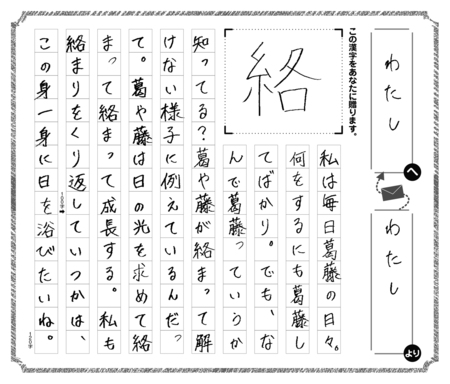 わたし
へ
わたし
より
この漢字をあなたに贈ります。
絡
私は毎日葛藤の日々。
何をするにも葛藤し
てばかり。でも、な
んで葛藤っていうか
知ってる？葛や藤が絡まって解
けない様子に例えているんだっ
て。葛や藤は日の光を求めて絡
まって絡まって成長する。私も
絡まりをくり返していつかは、
この身一身に日を浴びたいね。
100字
120字